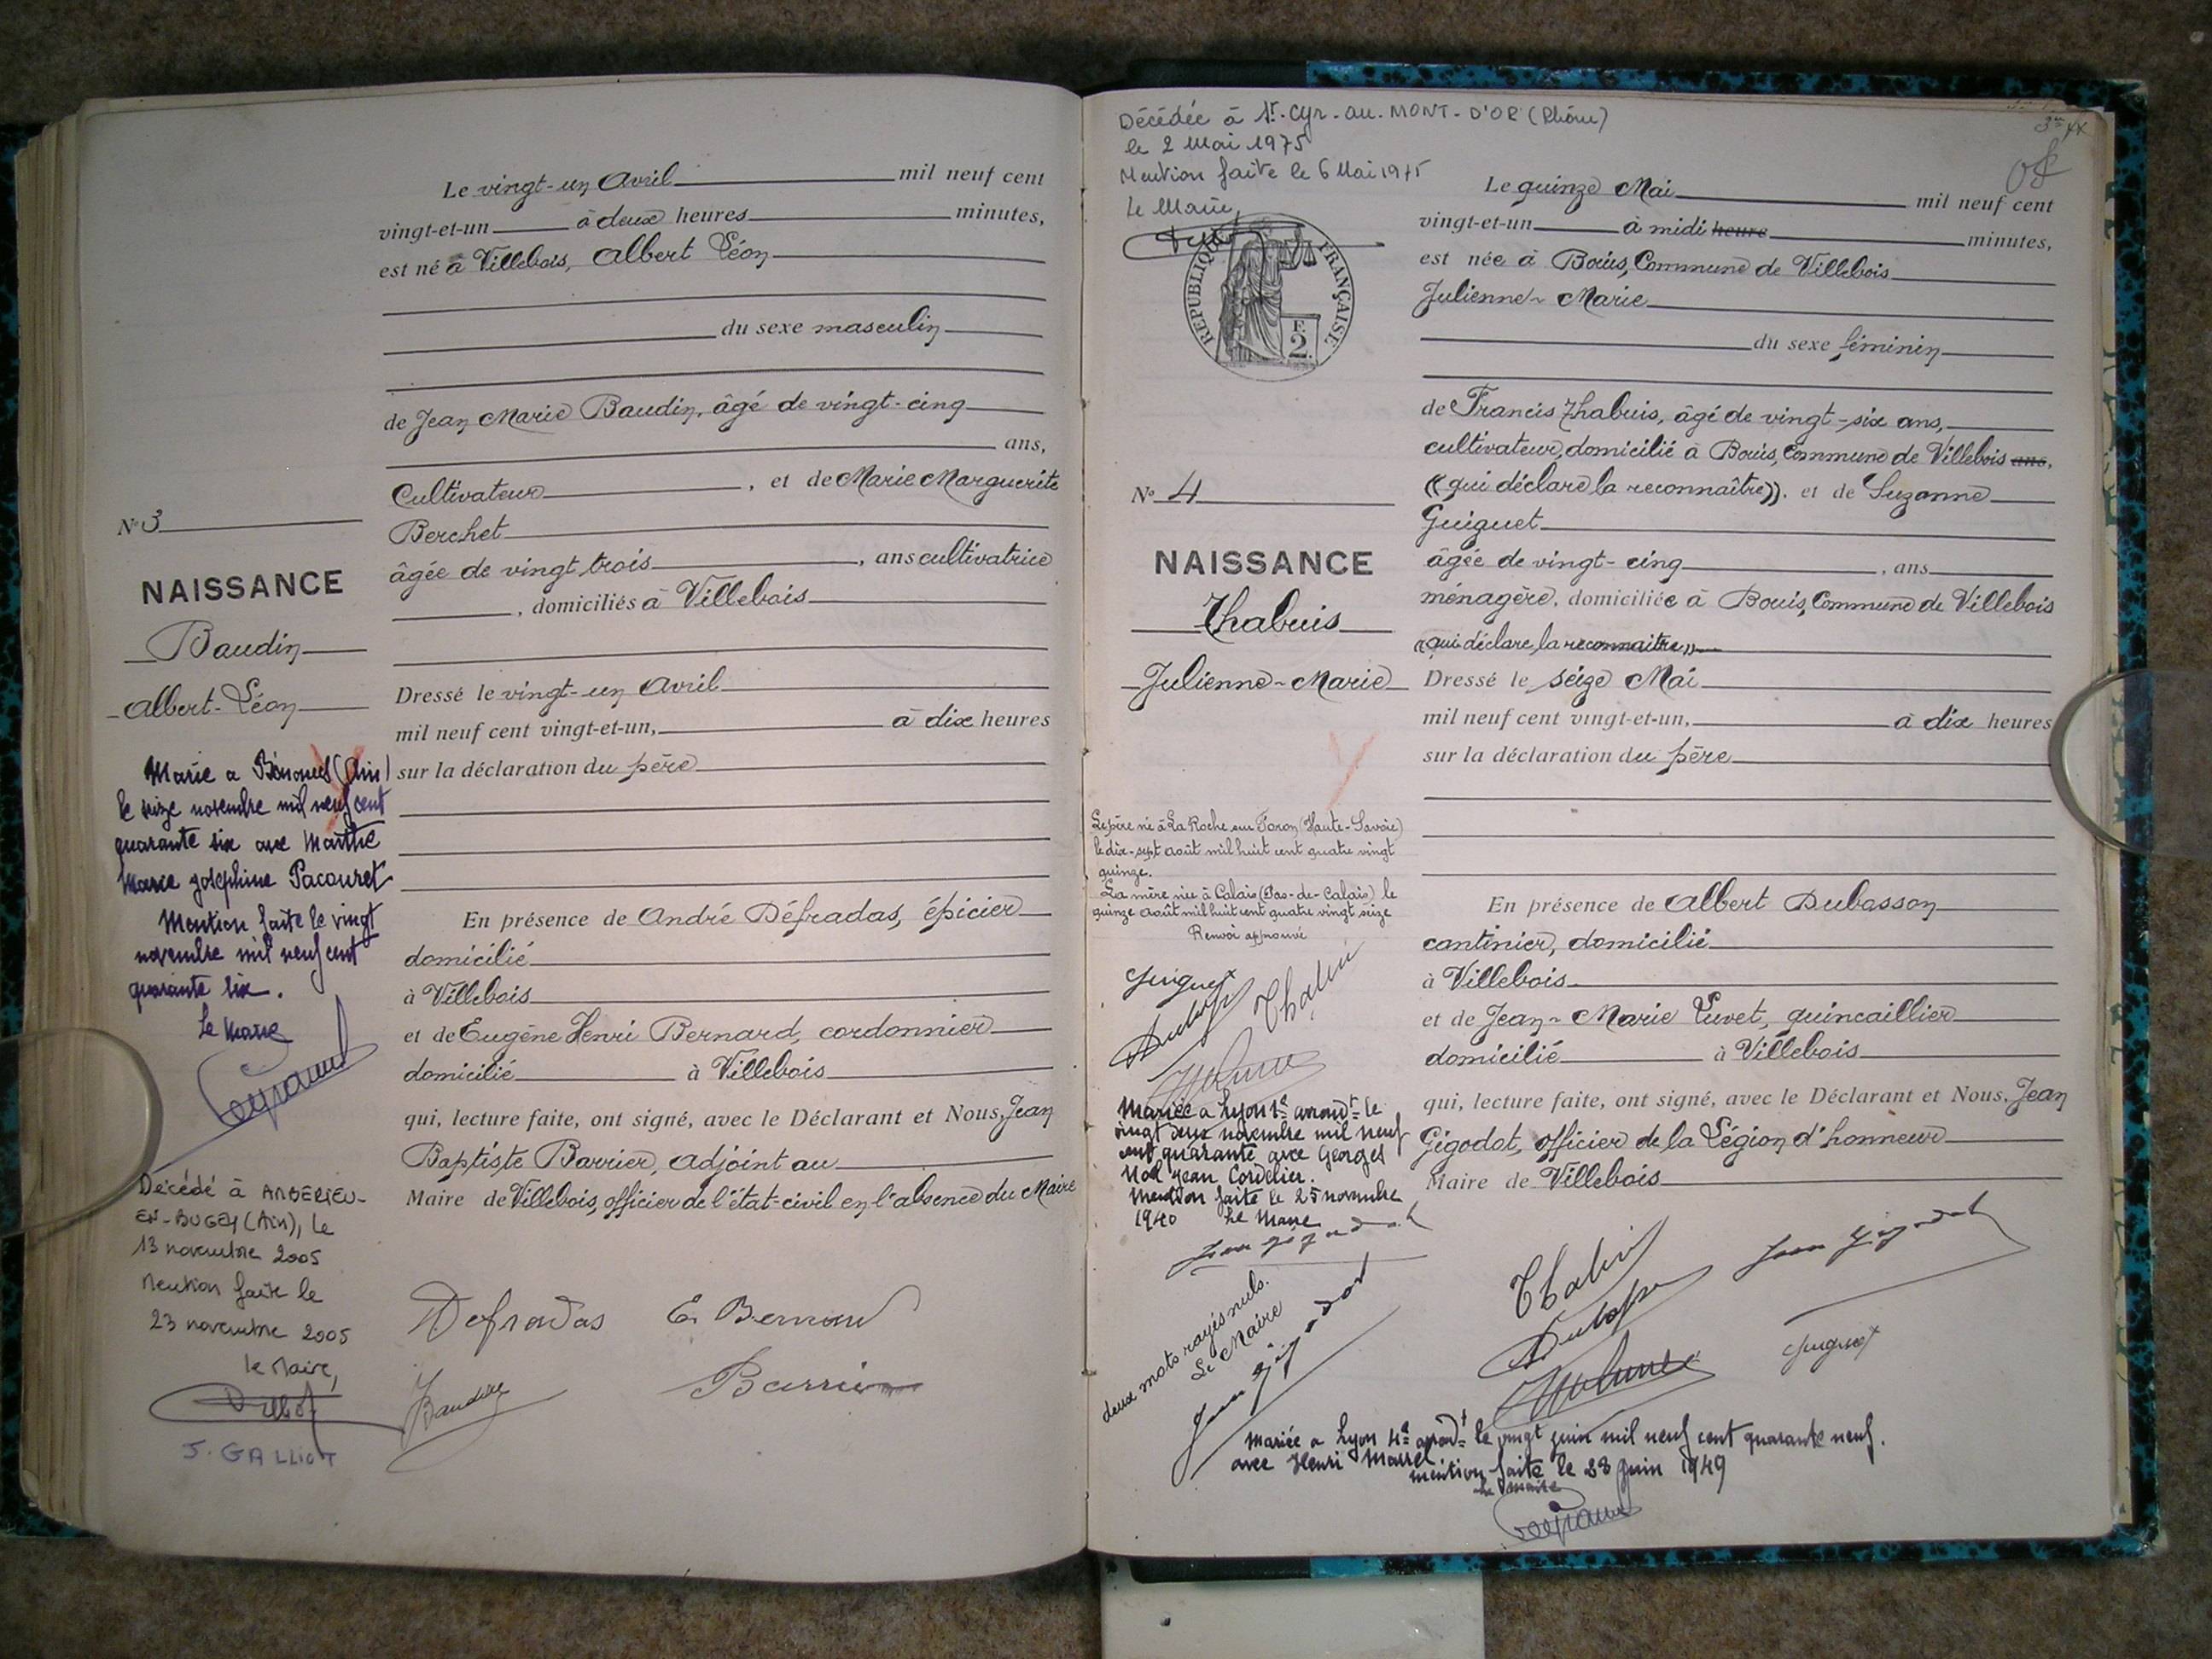 Le vingt-un Avril mil neuf cent
vingt-et-un à deux heures minutes,
est né à Villebois, Albert Léon
du sexe masculin
de Jean Marie Baudin, âgé de vingt-cinq
ans,
Cultivateur, et de Marie Marguerite
Berchet
âgée de vingt trois, ans cultivatrice
, domiciliés à Villebois
Dressé le vingt-un Avril
mil neuf cent vingt-et-un, à dix heures
sur la déclaration du père
En présence de André Défradas, épicier
domicilié
à Villebois
et de Eugène Henri Bernard, cordonnier
domicilié à Villebois
qui, lecture faite, ont signé, avec le Déclarant et Nous, Jean
Baptiste Barrier, adjoint au
Maire de Villebois, officier de l'état-civil en l'absence du Maire
Defradas E. Bernard
Baudin Barrier
N° 3
NAISSANCE
Baudin
Albert-Léon
Marié a (Ain)
le seize novembre mil neuf cent
quarante six avec Marthe
Marie Joséphine Pacouret
Mention faite le vingt
novembre mil neuf cent
quarante six.
Le Maire
Décédé à AMBÉRIEU-
EN-BUGEY (Ain), le
13 novembre 2005
Mention faite le
23 novembre 2005
le Maire,
J. GALLIOT
Décédée à St-Cyr-au-MONT-D'OR (Rhône)
le 2 Mai 1975
Mention faite le 6 Mai 1975
Le Maire,
REPUBLIQUE FRANÇAISE
F.
2.
Le quinze Mai mil neuf cent
vingt-et-un à midi heure minutes,
est née à Bouis, Commune de Villebois
Julienne-Marie
du sexe féminin
de Francis Thabuis, âgé de vingt-six ans,
cultivateur, domicilié à Bouis, Commune de Villebois ans,
((qui déclare la reconnaître)), et de Suzanne
Guiguet
âgée de vingt-cinq, ans
ménagère, domiciliée à Bouis, Commune de Villebois
((qui déclare la reconnaitre))
Dressé le seize Mai
mil neuf cent vingt-et-un, à dix heures
sur la déclaration du père
En présence de Albert Dubosson
cantinier, domicilié
à Villebois
et de Jean-Marie Luvet, quincaillier
domicilié à Villebois
qui, lecture faite, ont signé, avec le Déclarant et Nous, Jean
Gigodot, officier de la Légion d'honneur
Maire de Villebois
Thabuis Jean Gigodot
Guiguet
N° 4
NAISSANCE
Thabuis
Julienne-Marie
Le père né à La Roche sur Foron (Haute-Savoie)
le dix-sept août mil huit cent quatre vingt
quinze.
La mère née à Calais (Pas-de-Calais) le
quinze août mil huit cent quatre vingt seize
Renvoi approuvé
Guiguet
Thabuis
Mariée a Lyon 1er arrondt le
vingt deux novembre mil neuf
cent quarante avec Georges
Noël Jean Cordelier.
Mention faite le 25 novembre
1940 Le Maire
Jean Gigodot
deux mots rayés nuls.
Le Maire
Jean Gigodot
Mariée a Lyon 4e arrondt le vingt juin mil neuf cent quarante neuf.
avec Henri Marrel
mention faite le 28 juin 1949
Le Maire